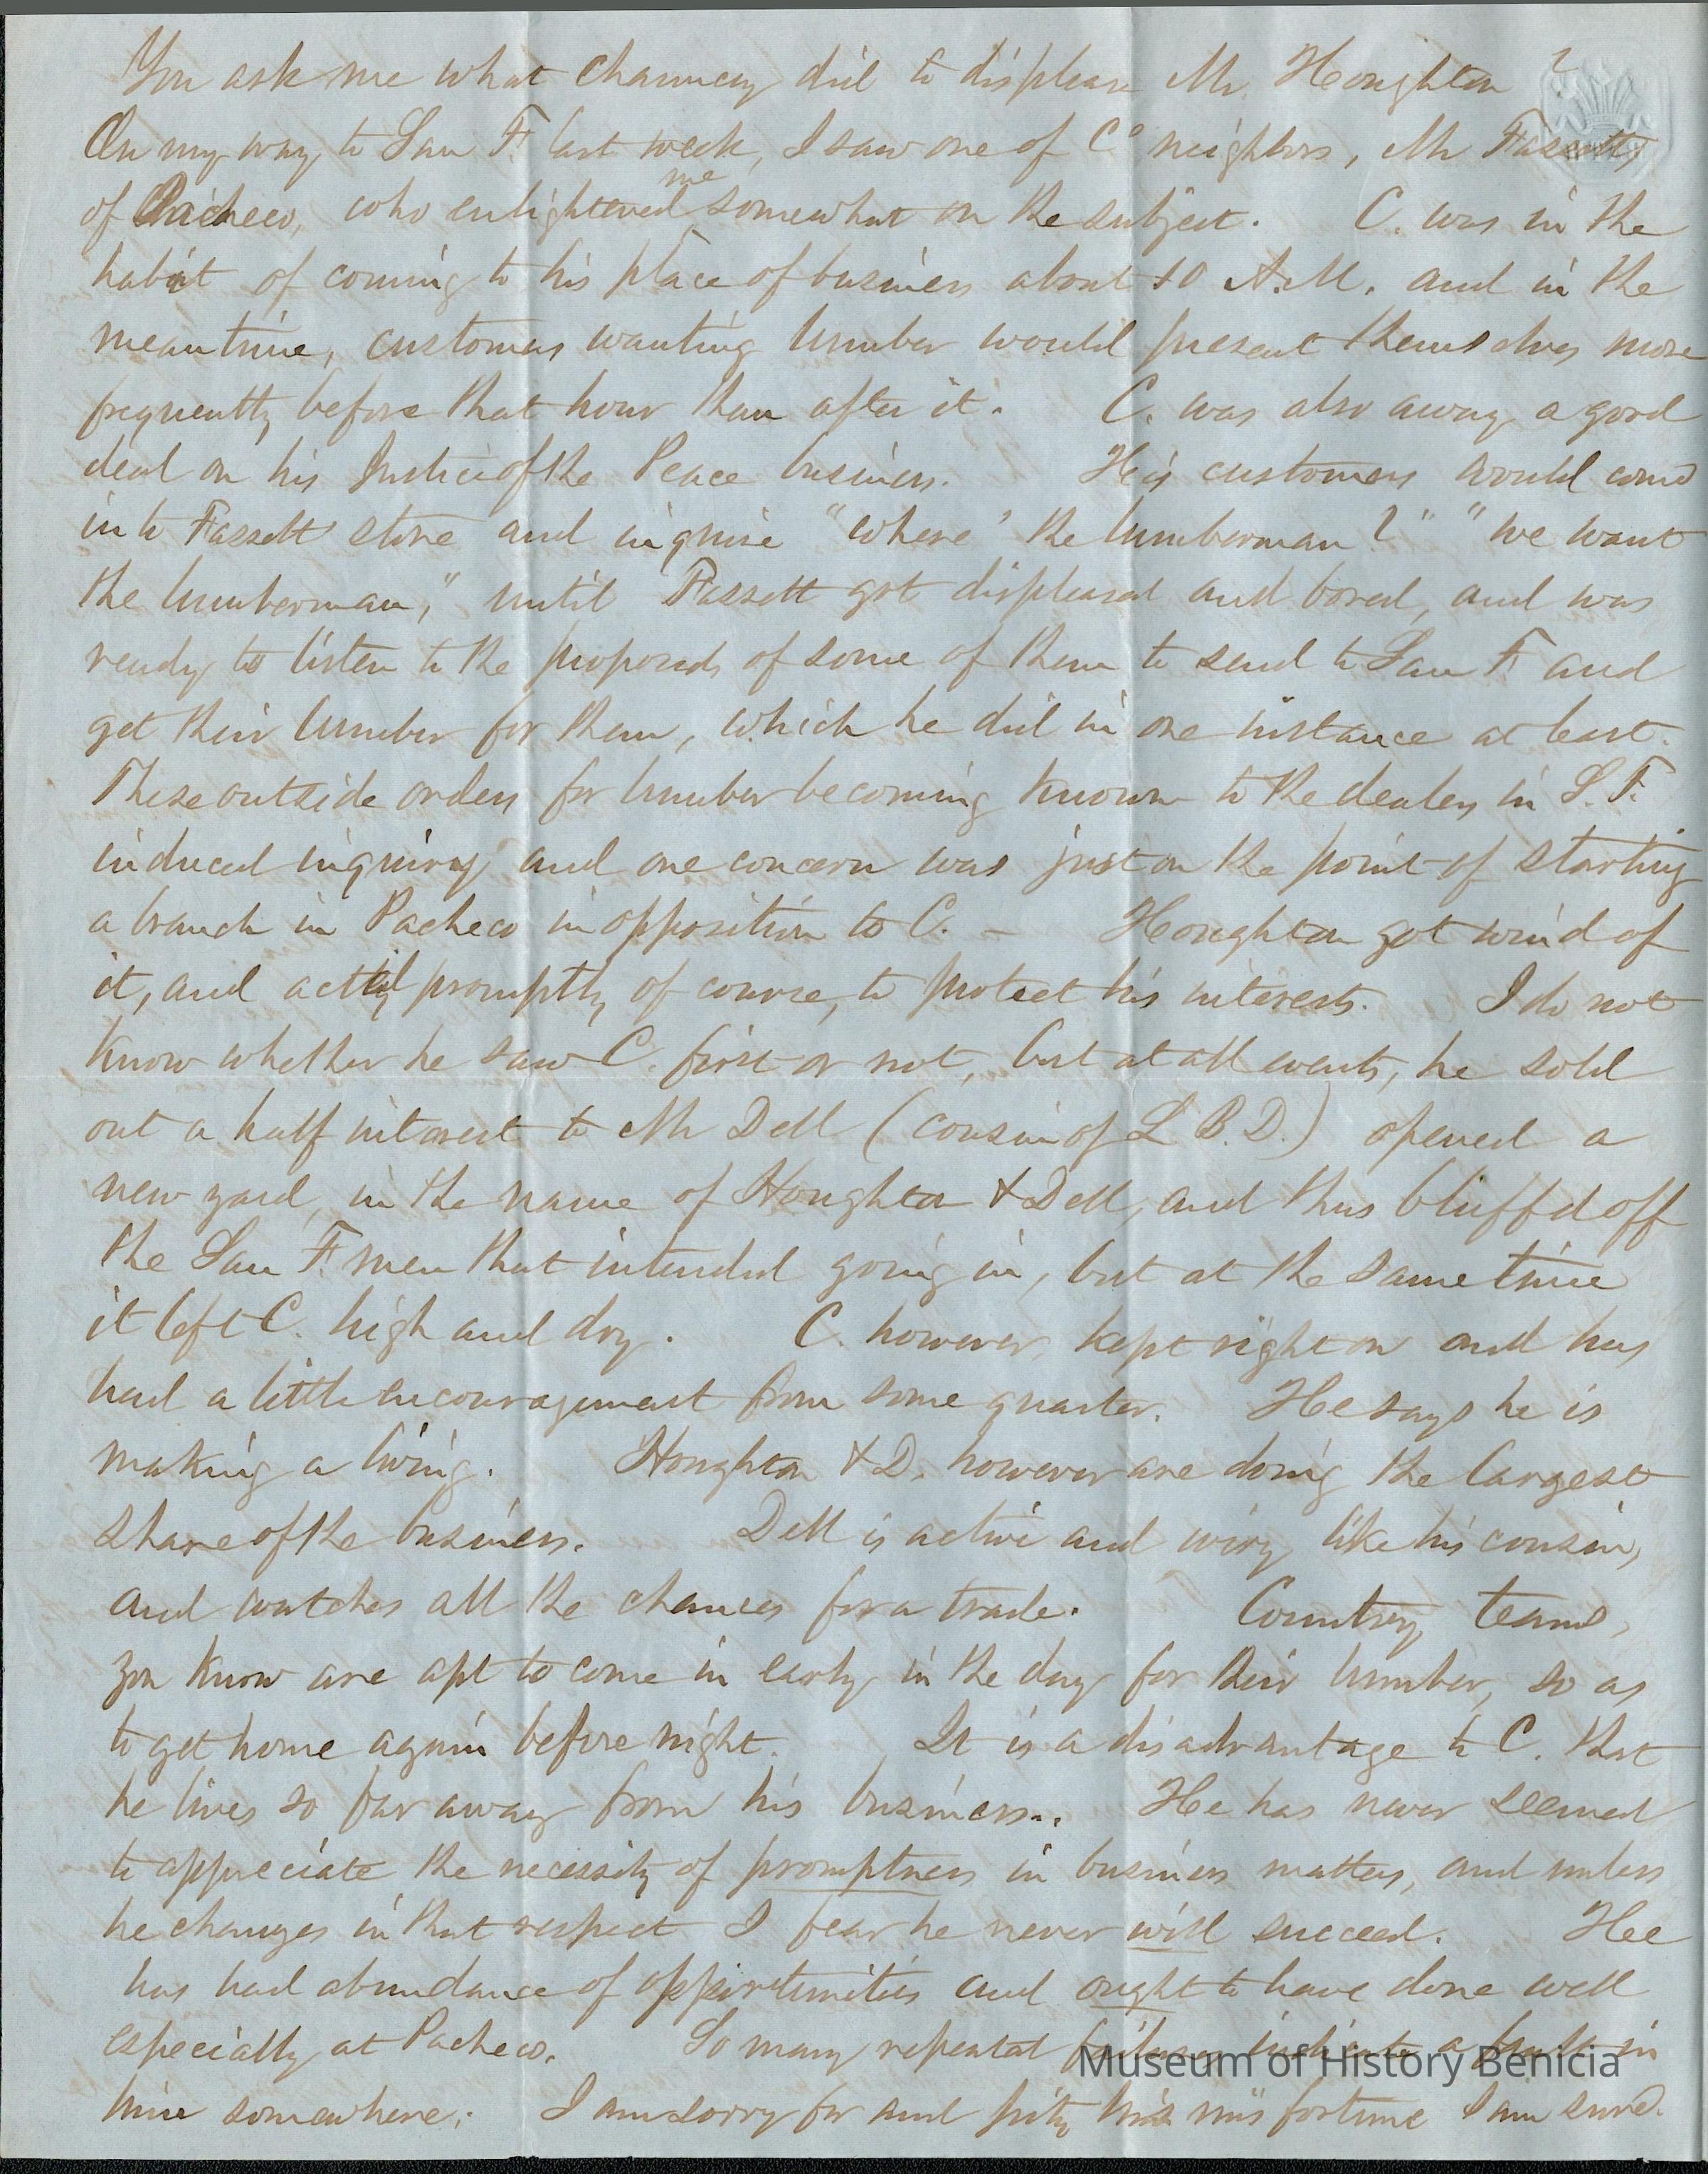 You ask me what Chauncey did to displease Mr. Houghton?
On my way to San F. last week, I saw one of C's neighbors, Mr Fassett,
of Pacheco, who enlightened me somewhat on the subject. C. was in the
habit of coming to his place of business about 10 A.M. and in the
meantime, customers wanting lumber would present themselves more
frequently before that hour than after it. C. was also away a good
deal on his Justice of the Peace business. His customers would come
into Fassett store and inquire "where' the lumberman?" "we want
the lumberman," until Fassett got displeased and bored, and was
ready to listen to the proposals of some of them to send to San F. and
get their lumber for them, which he did in one instance at least.
These outside orders for lumber becoming known to the dealers in S.F.
induced inquiry and one concern was just on the point of starting
a branch in Pacheco in opposition to C. – Houghton got wind of
it, and acted promptly of course, to protect his interests. I do not
know whether he saw C. first or not, but at all events, he sold
out a half interest to Mr Dell (cousin of L B.D.) opened a
new yard, in the name of Houghton & Dell, and thus bluffd off
the San F. men that intended going in, but at the same time
it left C. high and dry. C. however, kept right on and has
had a little encouragement from some quarter. He says he is
making a living. Houghton & D. however are doing the largest
share of the business. Dell is active and wiry like his cousin,
and watches all the chances for a trade. Country teams,
you know are apt to come in early in the day for their lumber, so as
to get home again before night. It is a disadvantage to C. that
he lives so far away from his business.. He has never seemed
to appreciate the necessity of promptness in business matters, and unless
he changes in that respect I fear he never will succeed. Hee
has had abundance of opportunities and ought to have done well
especially at Pacheco. So many repeated failures indicate a fault in
him somewhere. I am sorry for and pity his misfortune I am sure.
Museum of History Benicia